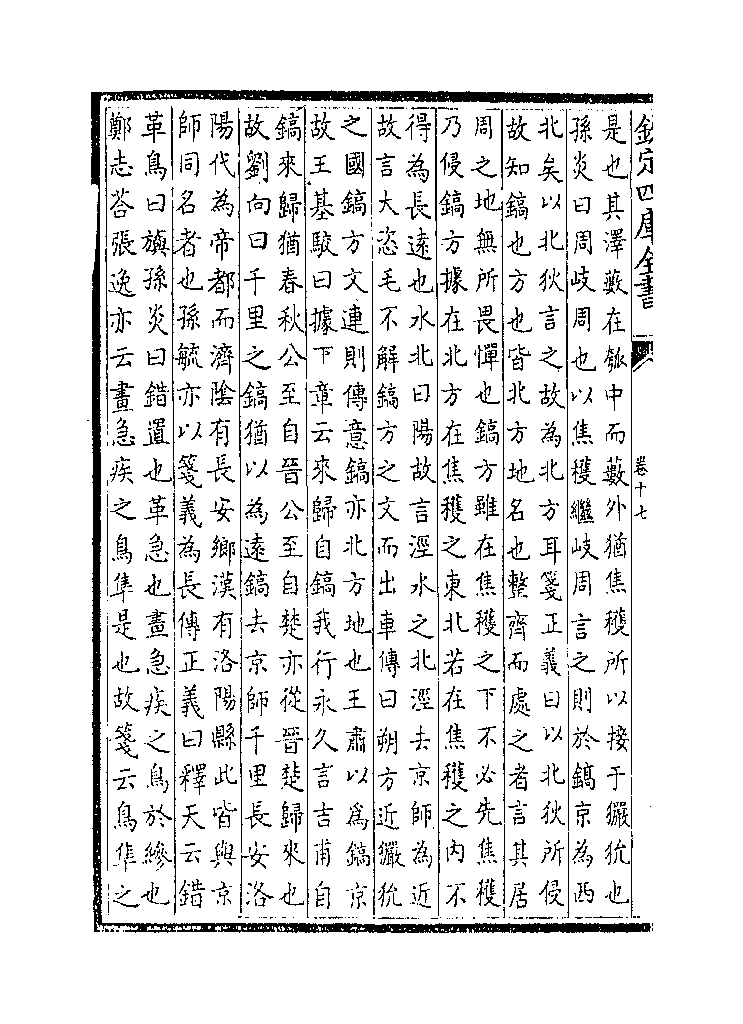 欽定四庫全書
卷十七
是也其澤藪在瓠中而藪外猶焦穫所以接于玁狁也
孫炎曰周岐周也以焦穫繼岐周言之則於鎬京為西
北矣以北狄言之故為北方耳箋正義曰以北狄所侵
故知鎬也方也皆北方地名也整齊而處之者言其居
周之地無所畏憚也鎬方雖在焦穫之下不必先焦穫
乃侵鎬方據在北方在焦穫之東北若在焦穫之内不
得為長遠也水北曰陽故言涇水之北涇去京師為近
故言大恣毛不解鎬方之文而出車傳曰朔方近玁狁
之國鎬方文連則傳意鎬亦北方地也王肅以爲鎬京
故王基駮曰據下章云來歸自鎬我行永久言吉甫自
鎬來歸猶春秋公至自晉公至自楚亦從晉楚歸來也
故劉向曰千里之鎬猶以為遠鎬去京師千里長安洛
陽代為帝都而濟陰有長安鄉漢有洛陽縣此皆與京
師同名者也孫毓亦以箋義為長傳正義曰釋天云錯
革鳥曰旟孫炎曰錯置也革急也畫急疾之鳥於縿也
鄭志荅張逸亦云畫急疾之鳥隼是也故箋云鳥隼之